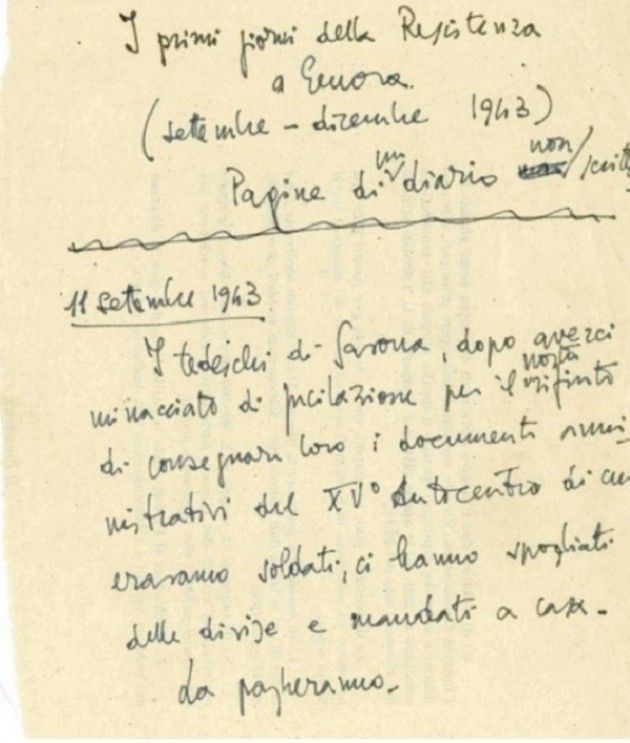 I primi giorni della Resistenza
a Genova.
(settembre – dicembre 1943)
Pagine di un diario non scritto
11 settembre 1943
I tedeschi di Savona, dopo averci
minacciato di fucilazione per il nostro rifiuto
di consegnare loro i documenti ammi-
nistrativi del XV° Autocentro di cui
eravamo soldati, ci hanno spogliati
delle divise e mandati a casa –
La pagheranno –